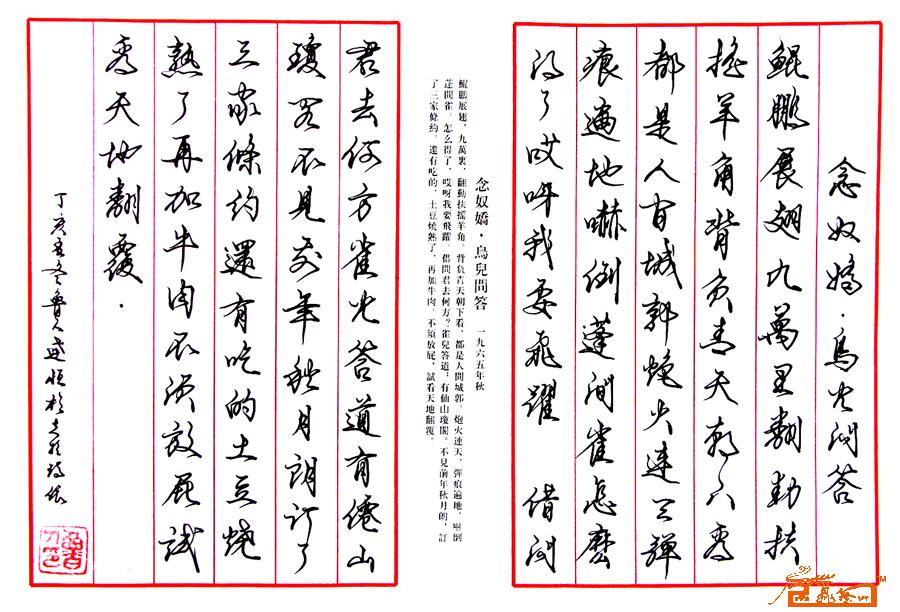 念奴嬌·鳥兒问答
鯤鵬展翅九萬里翻動扶
摇羊角背負青天朝下看
都是人间城郭炮火連天彈
痕遍地嚇倒蓬间雀怎麽
得了哎呀我要飛躍 借问
念奴嬌·鳥兒問答 一九六五年秋
鯤鵬展翅，九萬裏，翻動扶摇羊角。背負青天朝下看，都是人間城郭。炮火連天，彈痕遍地，嚇倒
蓬間雀。怎么得了，哎呀我要飛躍。借問君去何方？雀兒答道：有仙山瓊閣。不見前年秋月朗，訂
了三家條約。還有吃的，土豆燒熟了，再加牛肉。不須放屁，試看天地翻覆。
君去何方雀兒答道有僊山
瓊阁不見前年秋月朗订了
三家條约還有吃的土豆燒
熟了再加牛肉不須放屁試
看天地翻覆·
丁亥 冬魯人